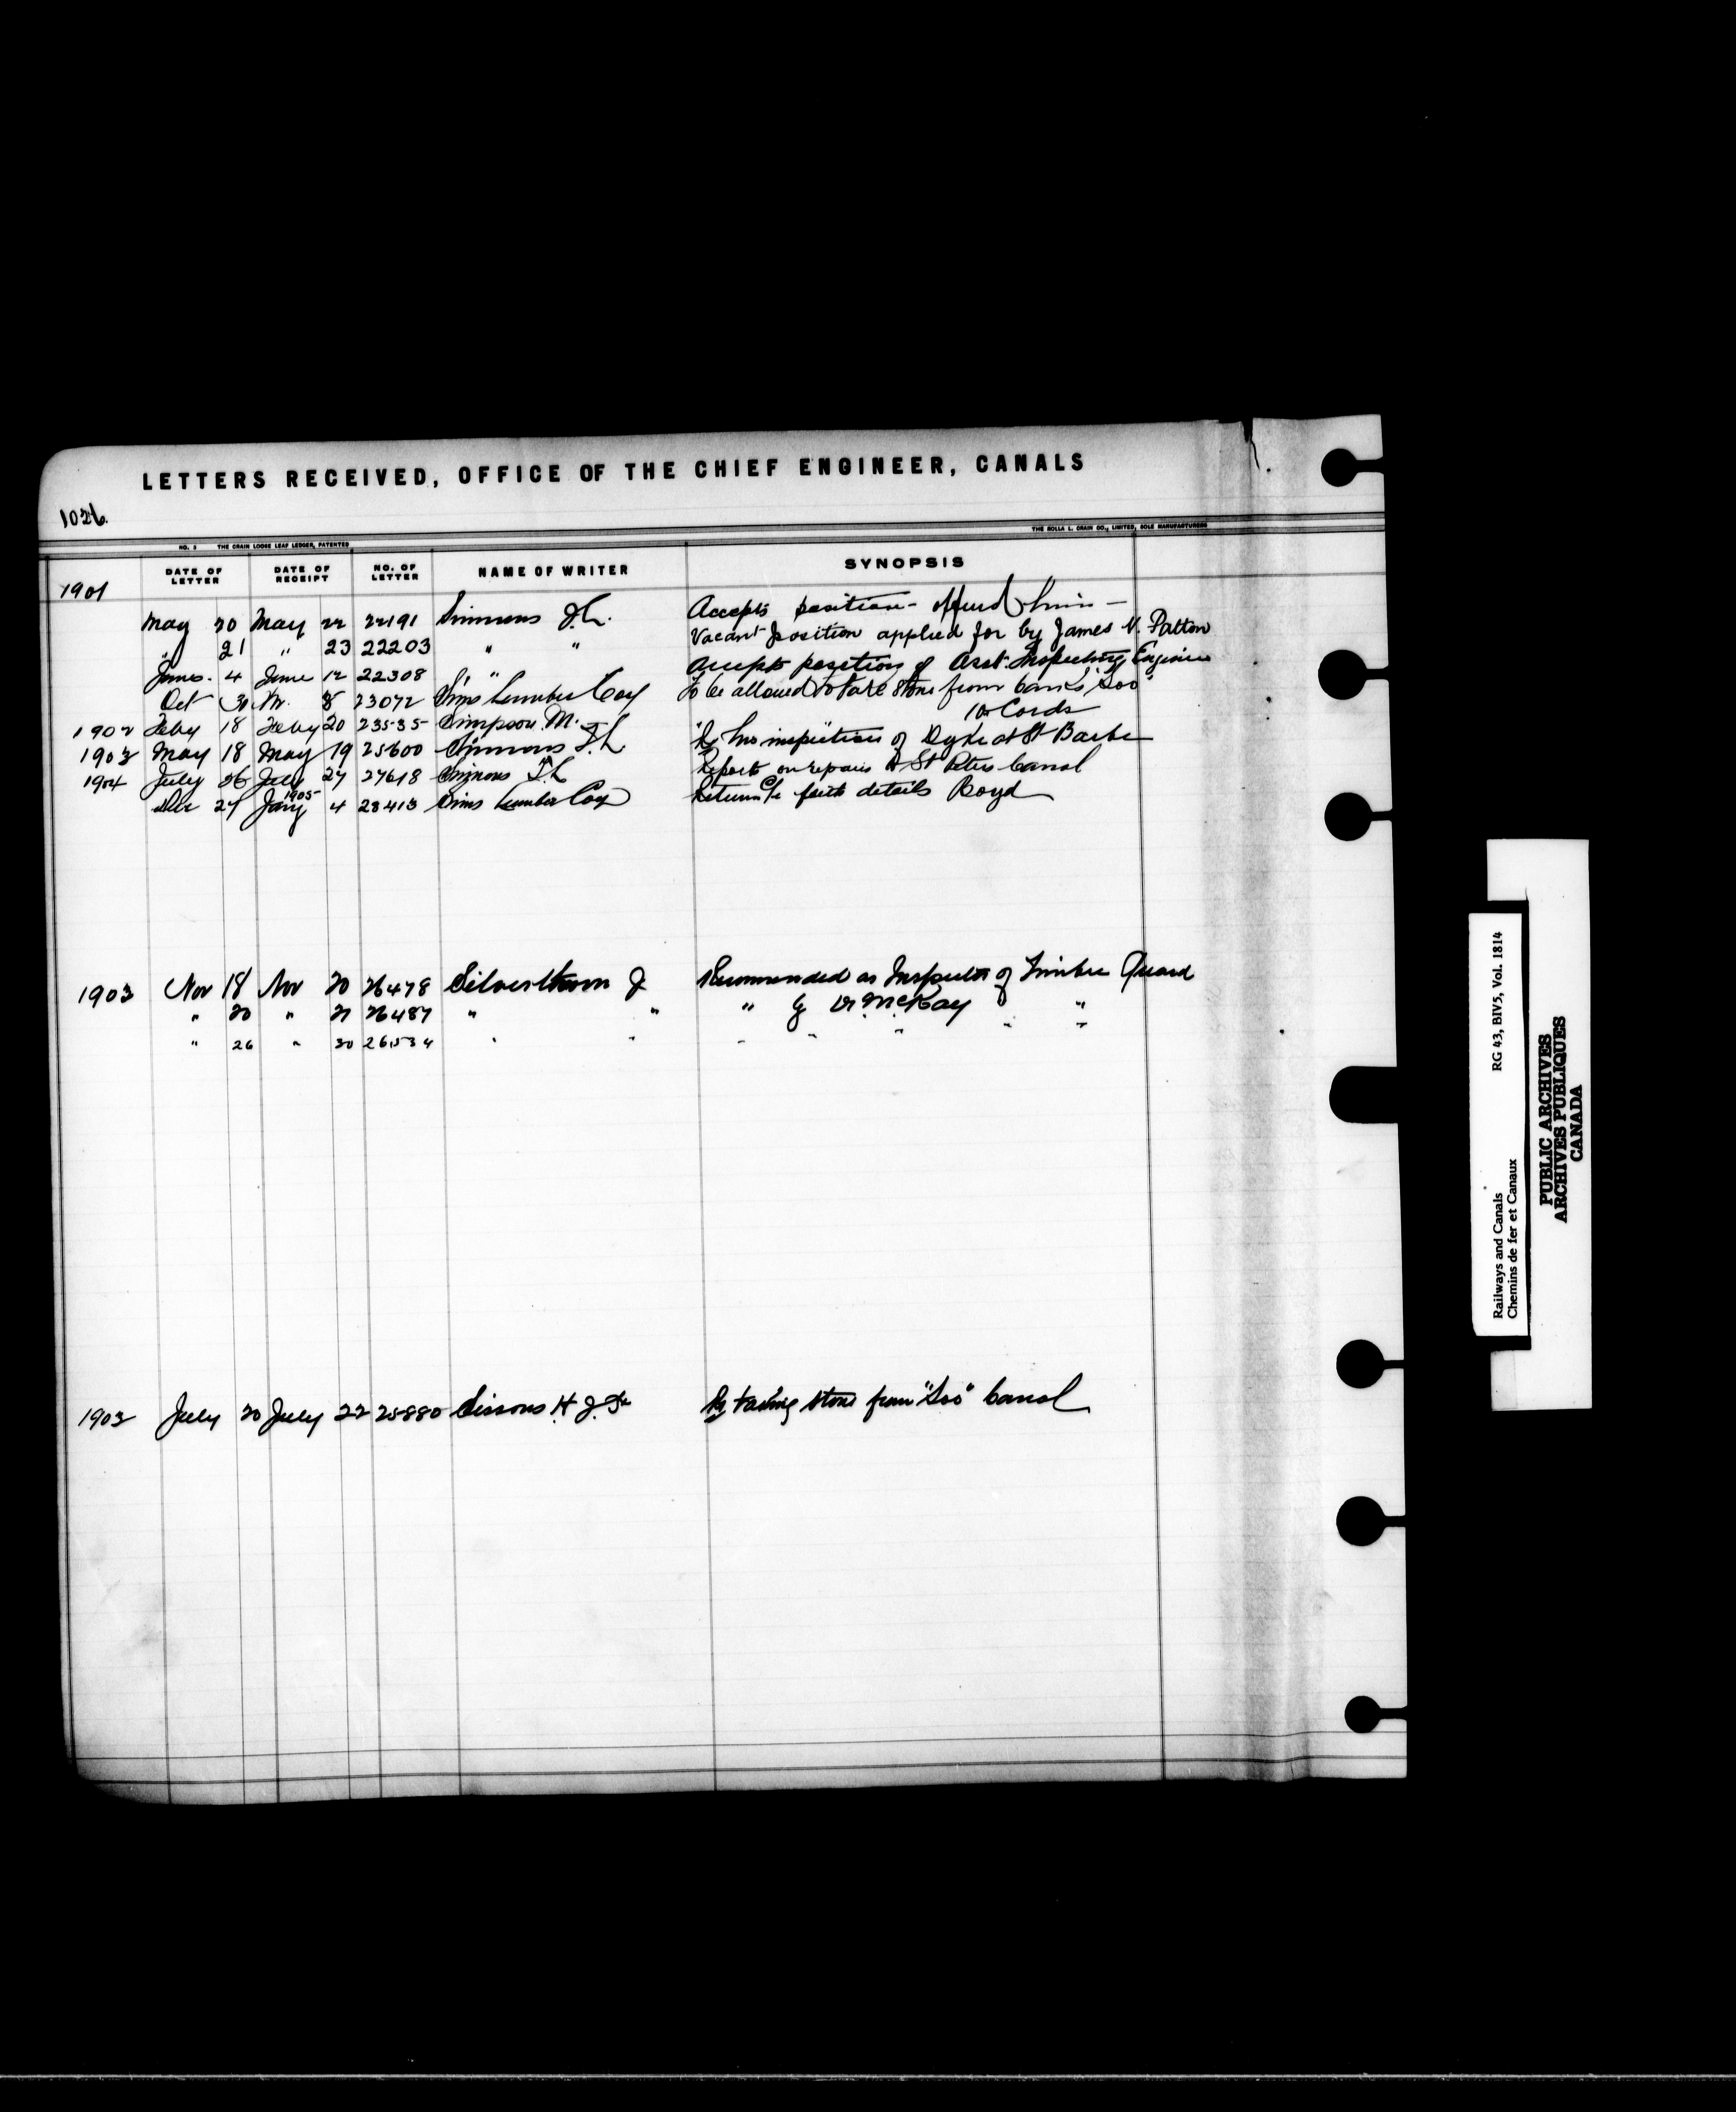 LETTERS RECEIVED, OFFICE OF THE CHIEF ENGINEER, CANALS
1026.
THE ROLLA L. CRAIN CO., LIMITED, SOLE MANUFACTURERS
NO. 2 THE CRAIN LOOSE LEAF LEDGER, PATENTED
DATE OF LETTER DATE OF RECEIPT NO. OF LETTER NAME OF WRITER SYNOPSIS
1901
May 20 May 22 22191 Simmons J.L. Accepts position offered him —
" 21 " 23 22203 " " Vacant position applied for by James V. Patton
June 4 June 12 22308 " " Accepts position of Asst Inspecting Engineer
Oct 31 8 23072 Sims Lumber Coy To be allowed to take stone from banks "Soo"
1902 Feby 18 Feby 20 23535 Simpson M. 10 Cords
1903 May 18 May 19 25600 Simmons T.L. Re his inspection of Dyke at St Barbe
1904 July 26 July 27 27618 Simmons T.L. Reports on repairs St Peters Canal
Dec 27 Jany 1905 4 28413 Sims Lumber Coy Returns a/c details Boyd
1903 Nov 18 Nov 20 26478 Silverthorn J Recommended as Inspector of Timber Guard
" 20 " 21 26487 " " " by Dr. McKay "
" 26 " 30 26534 " " " " " " "
1903 July 20 July 22 25880 Sissons H.J. Re taking stone from "Soo" Canal
Railways and Canals RG 43, BIV5, Vol. 1814
Chemins de fer et Canaux
PUBLIC ARCHIVES
ARCHIVES PUBLIQUES
CANADA